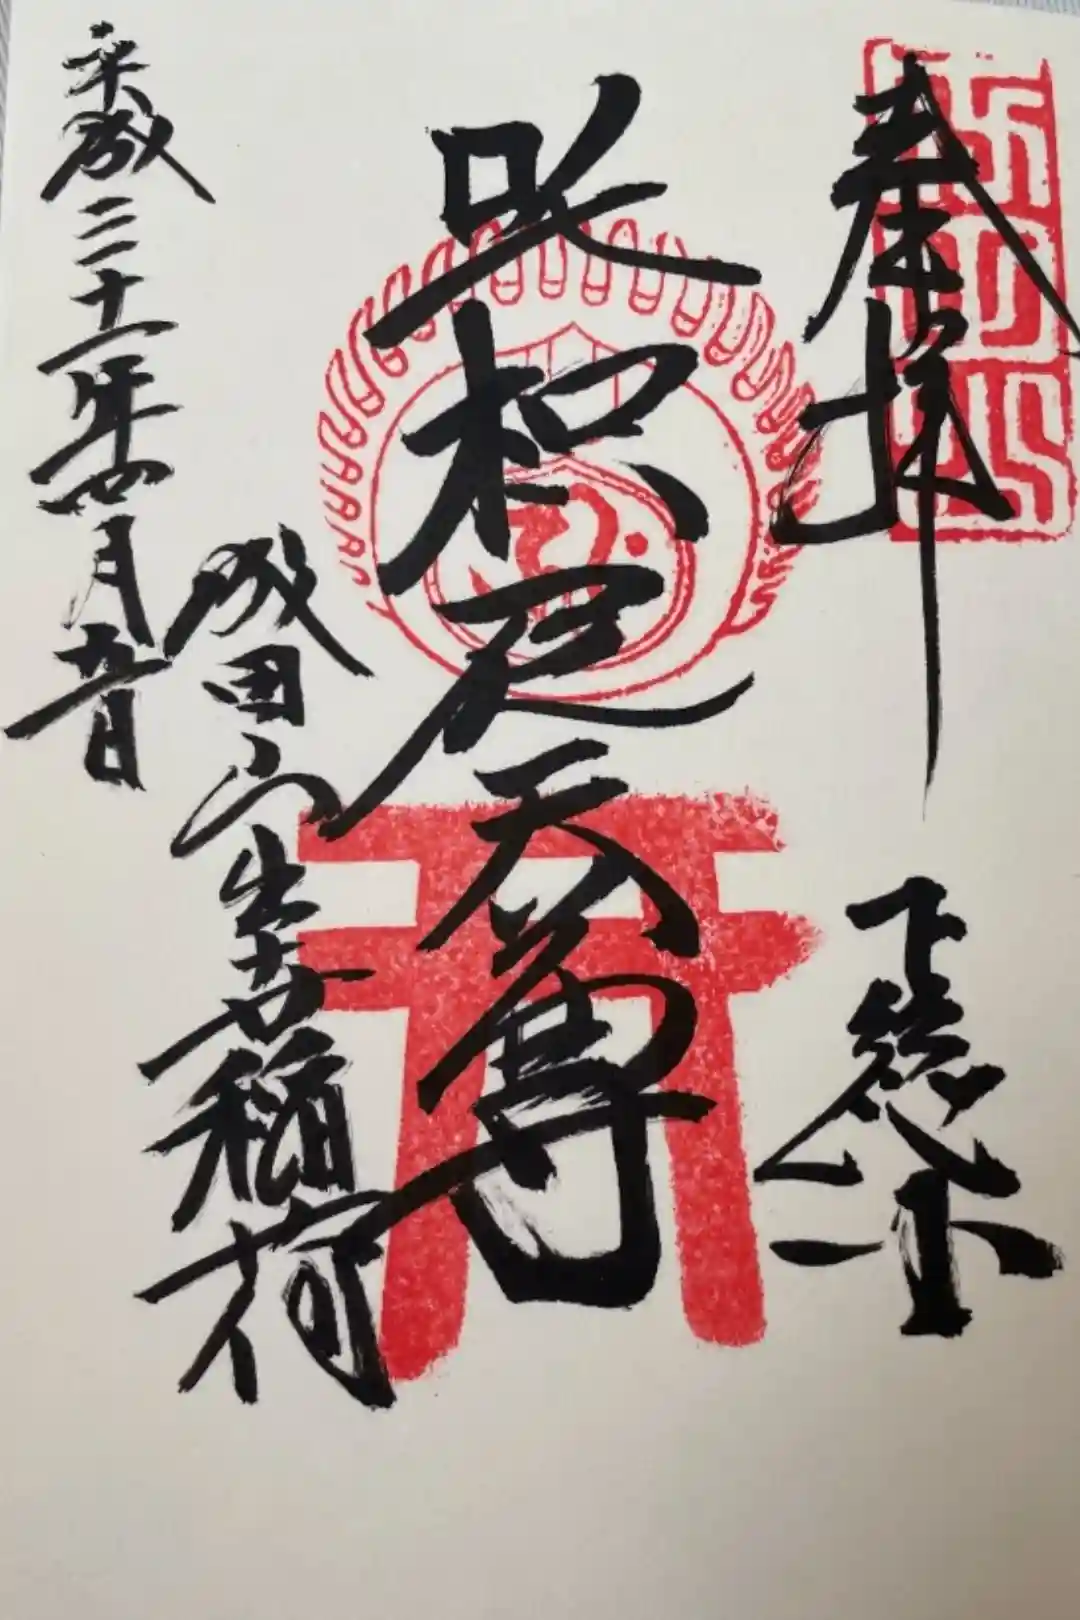 奉拝
下総
成田山
吒枳尼天尊
成田山出世稲荷
平成三十一年四月九日